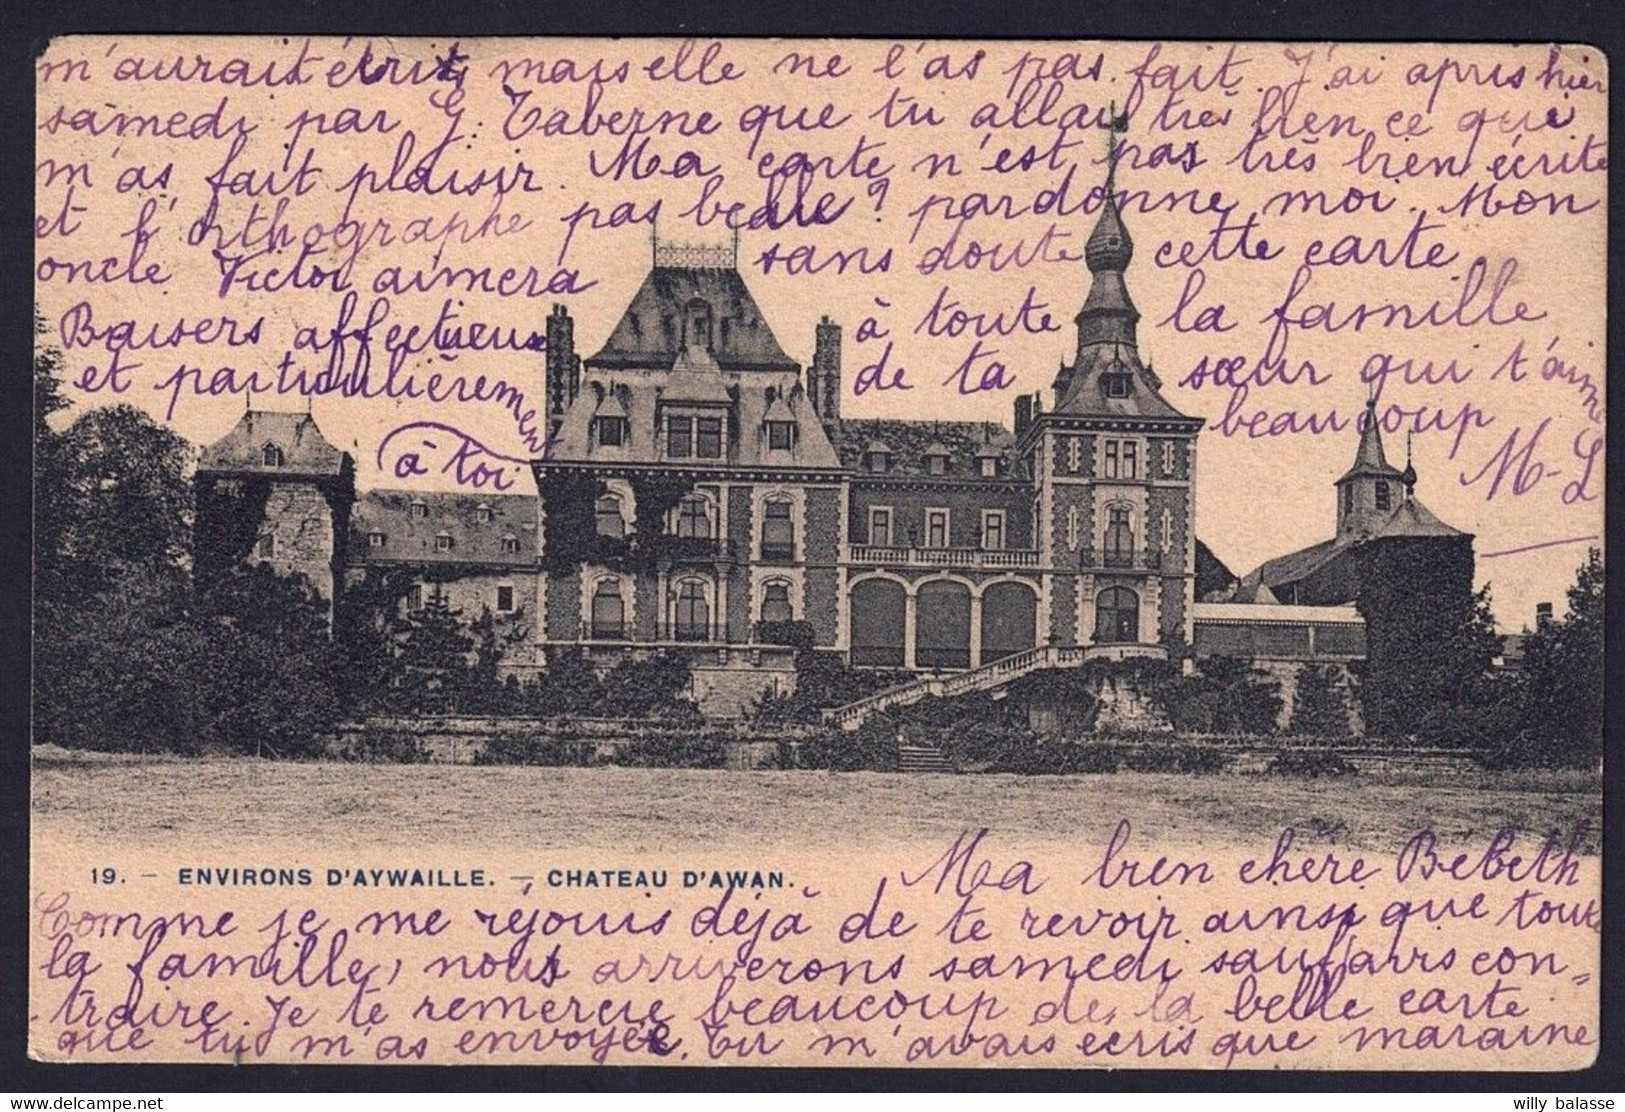 m'aurait écrit, mais elle ne l'as pas fait. J'ai apris hier
samedi par G. Taberne que tu allais très bien ce qui
m'as fait plaisir. Ma carte n'est pas très bien écrite
et l'orthographe pas belle? pardonne moi. Mon
oncle Victor aimera sans doute cette carte
Baisers affectueux à toute la famille
et particulièrement de ta sœur qui t'aime
à toi
beaucoup
M-L
19. – ENVIRONS D'AYWAILLE. – CHATEAU D'AWAN.
Ma bien chère Bébeth
Comme je me réjouis déjà de te revoir ainsi que toute
la famille, nous arriverons samedi sauf avis con=
traire. Je te remercie beaucoup de la belle carte
que tu m'as envoyée. Tu m'avais écris que maraine
willy balasse